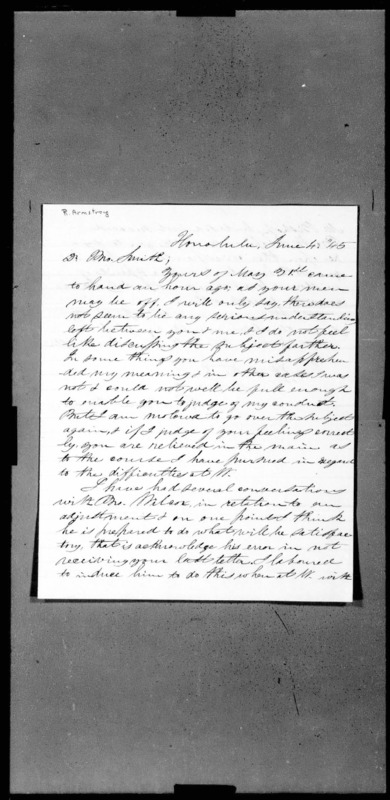 R Armstrong
Honolulu, June 4, '45
Dr. Bro. Smith;
Yours of May 31st came
to hand an hour ago; as your man
may be off, I will only say, there does
not seem to be any serious misunderstanding
left between you & me, & I do not feel
like discussing the subject farther.
In some things you have misapprehen
ded my meaning; in other cases I was
not & could not well be full enough
to enable you to judge of my conduct.
But I am not to go over the subject
again, & if I judge of your feelings correct
ly, you are relieved in the main as
to the course I have pursued in regard
to the difficulties at W.
I have had several conversations
with Bro. Wilcox in relation to an
adjustment & on one point I think
he is prepared to do what will be satisfac
tory, that is acknowledge his error in not
receiving your last letter. I laboured
to induce him to do this when at W. with